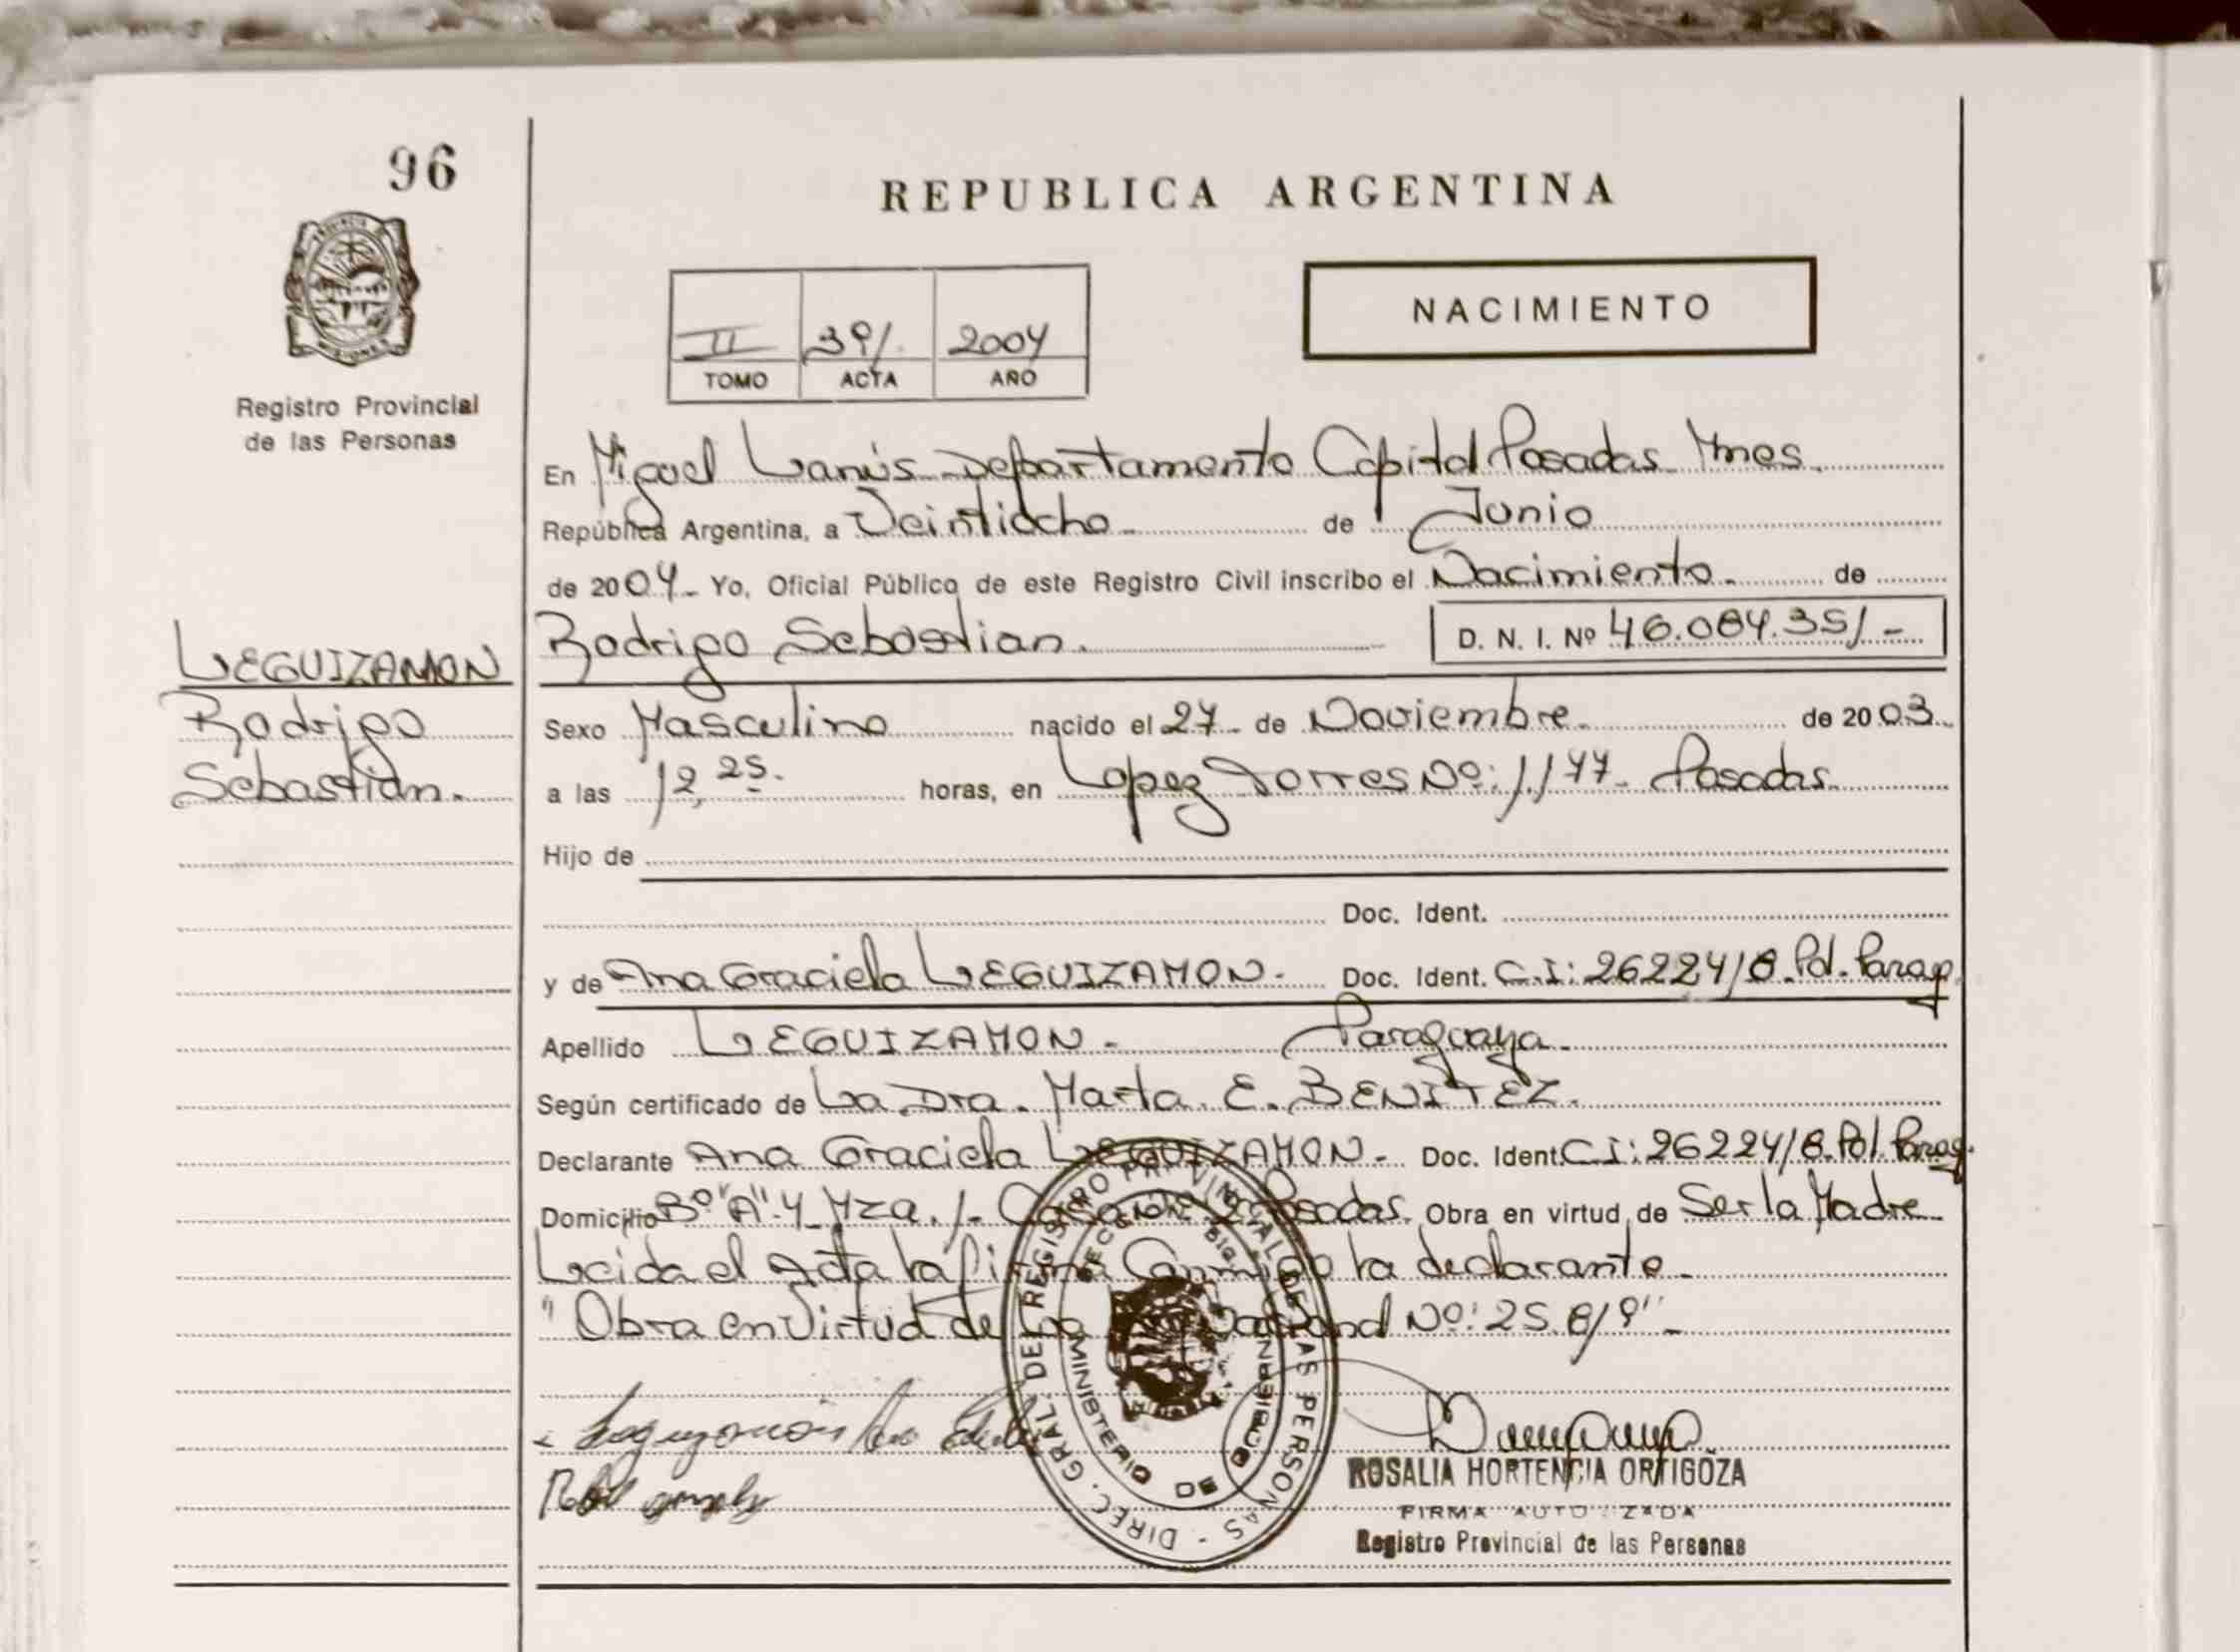 96
REPUBLICA ARGENTINA
NACIMIENTO
II 391. 2004
TOMO ACTA AÑO
Registro Provincial
de las Personas
En Miguel Lanús Departamento Capital Posadas Mnes.
República Argentina, a Veintiocho de Junio
de 2004 Yo, Oficial Público de este Registro Civil inscribo el Nacimiento de
Rodrigo Sebastian. D. N. I. Nº 46.084.351-
LEGUIZAMON
Rodrigo
Sebastian.
Sexo Masculino nacido el 27 de Noviembre de 2003
a las 12,25. horas, en Lopez Torres Nº: 1177 Posadas.
Hijo de
Doc. Ident.
y de Ana Graciela LEGUIZAMON- Doc. Ident. C.I: 2622418. Pol. Parag.
Apellido LEGUIZAMON - Paraguaya.
Según certificado de La Dra. Marta. E. BENITEZ.
Declarante Ana Graciela LEGUIZAMON- Doc. Ident. C.I: 2622418. Pol. Parag.
Domicilio Bº "A" 4 Mza. 1- Casa Posadas. Obra en virtud de Ser la Madre
Leida el Acta la firma Conmigo la declarante.
"Obra en Virtud de La Nacional Nº: 25.819"-
DIREC. GRAL. DEL REGISTRO PROVINCIAL DE LAS PERSONAS
MINISTERIO DE GOBIERNO
ROSALIA HORTENCIA ORTIGOZA
FIRMA AUTORIZADA
Registro Provincial de las Personas